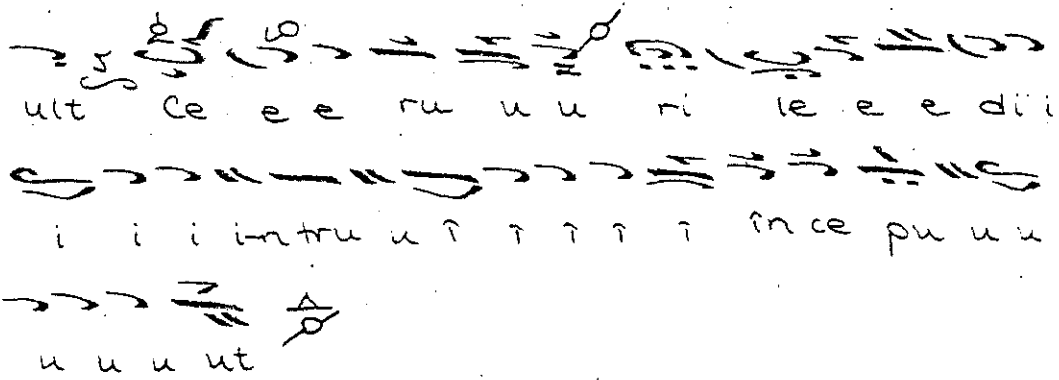 ult Ce e e ru u u ri le e e di i
i i i i-n tru u î î î î î în ce pu u u
u u u ut